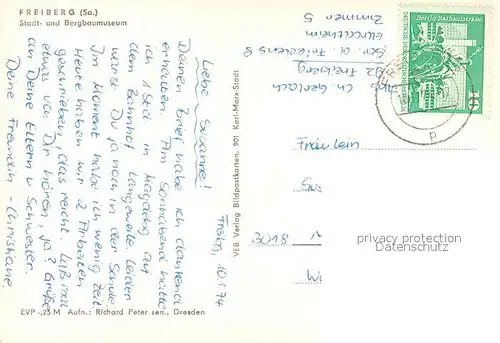 FREIBERG (Sa.)
Stadt- und Bergbaumuseum
Freiberg, 10.1.74
Liebe Susanne!
Deinen Brief habe ich dankend
erhalten. Am Sonnabend hatte
ich 1 Std. in Magdebg. auf
dem Bahnhof Langeweile. Leider
warst Du ja noch in der Schule.
Im Moment habe ich wenig Zeit.
Heute haben wir 2 Arbeiten
geschrieben, das reicht. Laß mal
etwas von Dir hören, ja? Grüße
an Deine Eltern u. Schwester.
Deine Freundin - Christiane.
EVP -,25 M Aufn.: Richard Peter sen., Dresden
VEB Verlag Bildpostkarten, 901 Karl-Marx-Stadt
Ch. Gerlach
92 Freiberg
Zimmer 5
Berlin, Rathausstraße
10
DDR
Fräulein
3018
privacy protection
Datenschutz